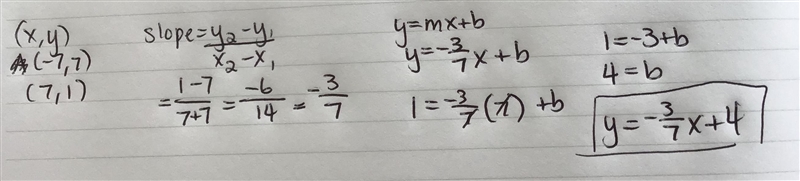 (x,y)
(-7,7)
(7,1)
slope=y₂-y₁/x₂-x₁
=1-7/7+7=-6/14=-3/7
y=mx+b
y=-3/7x+b
1=-3/7(7)+b
1=-3+b
4=b
y=-3/7x+4